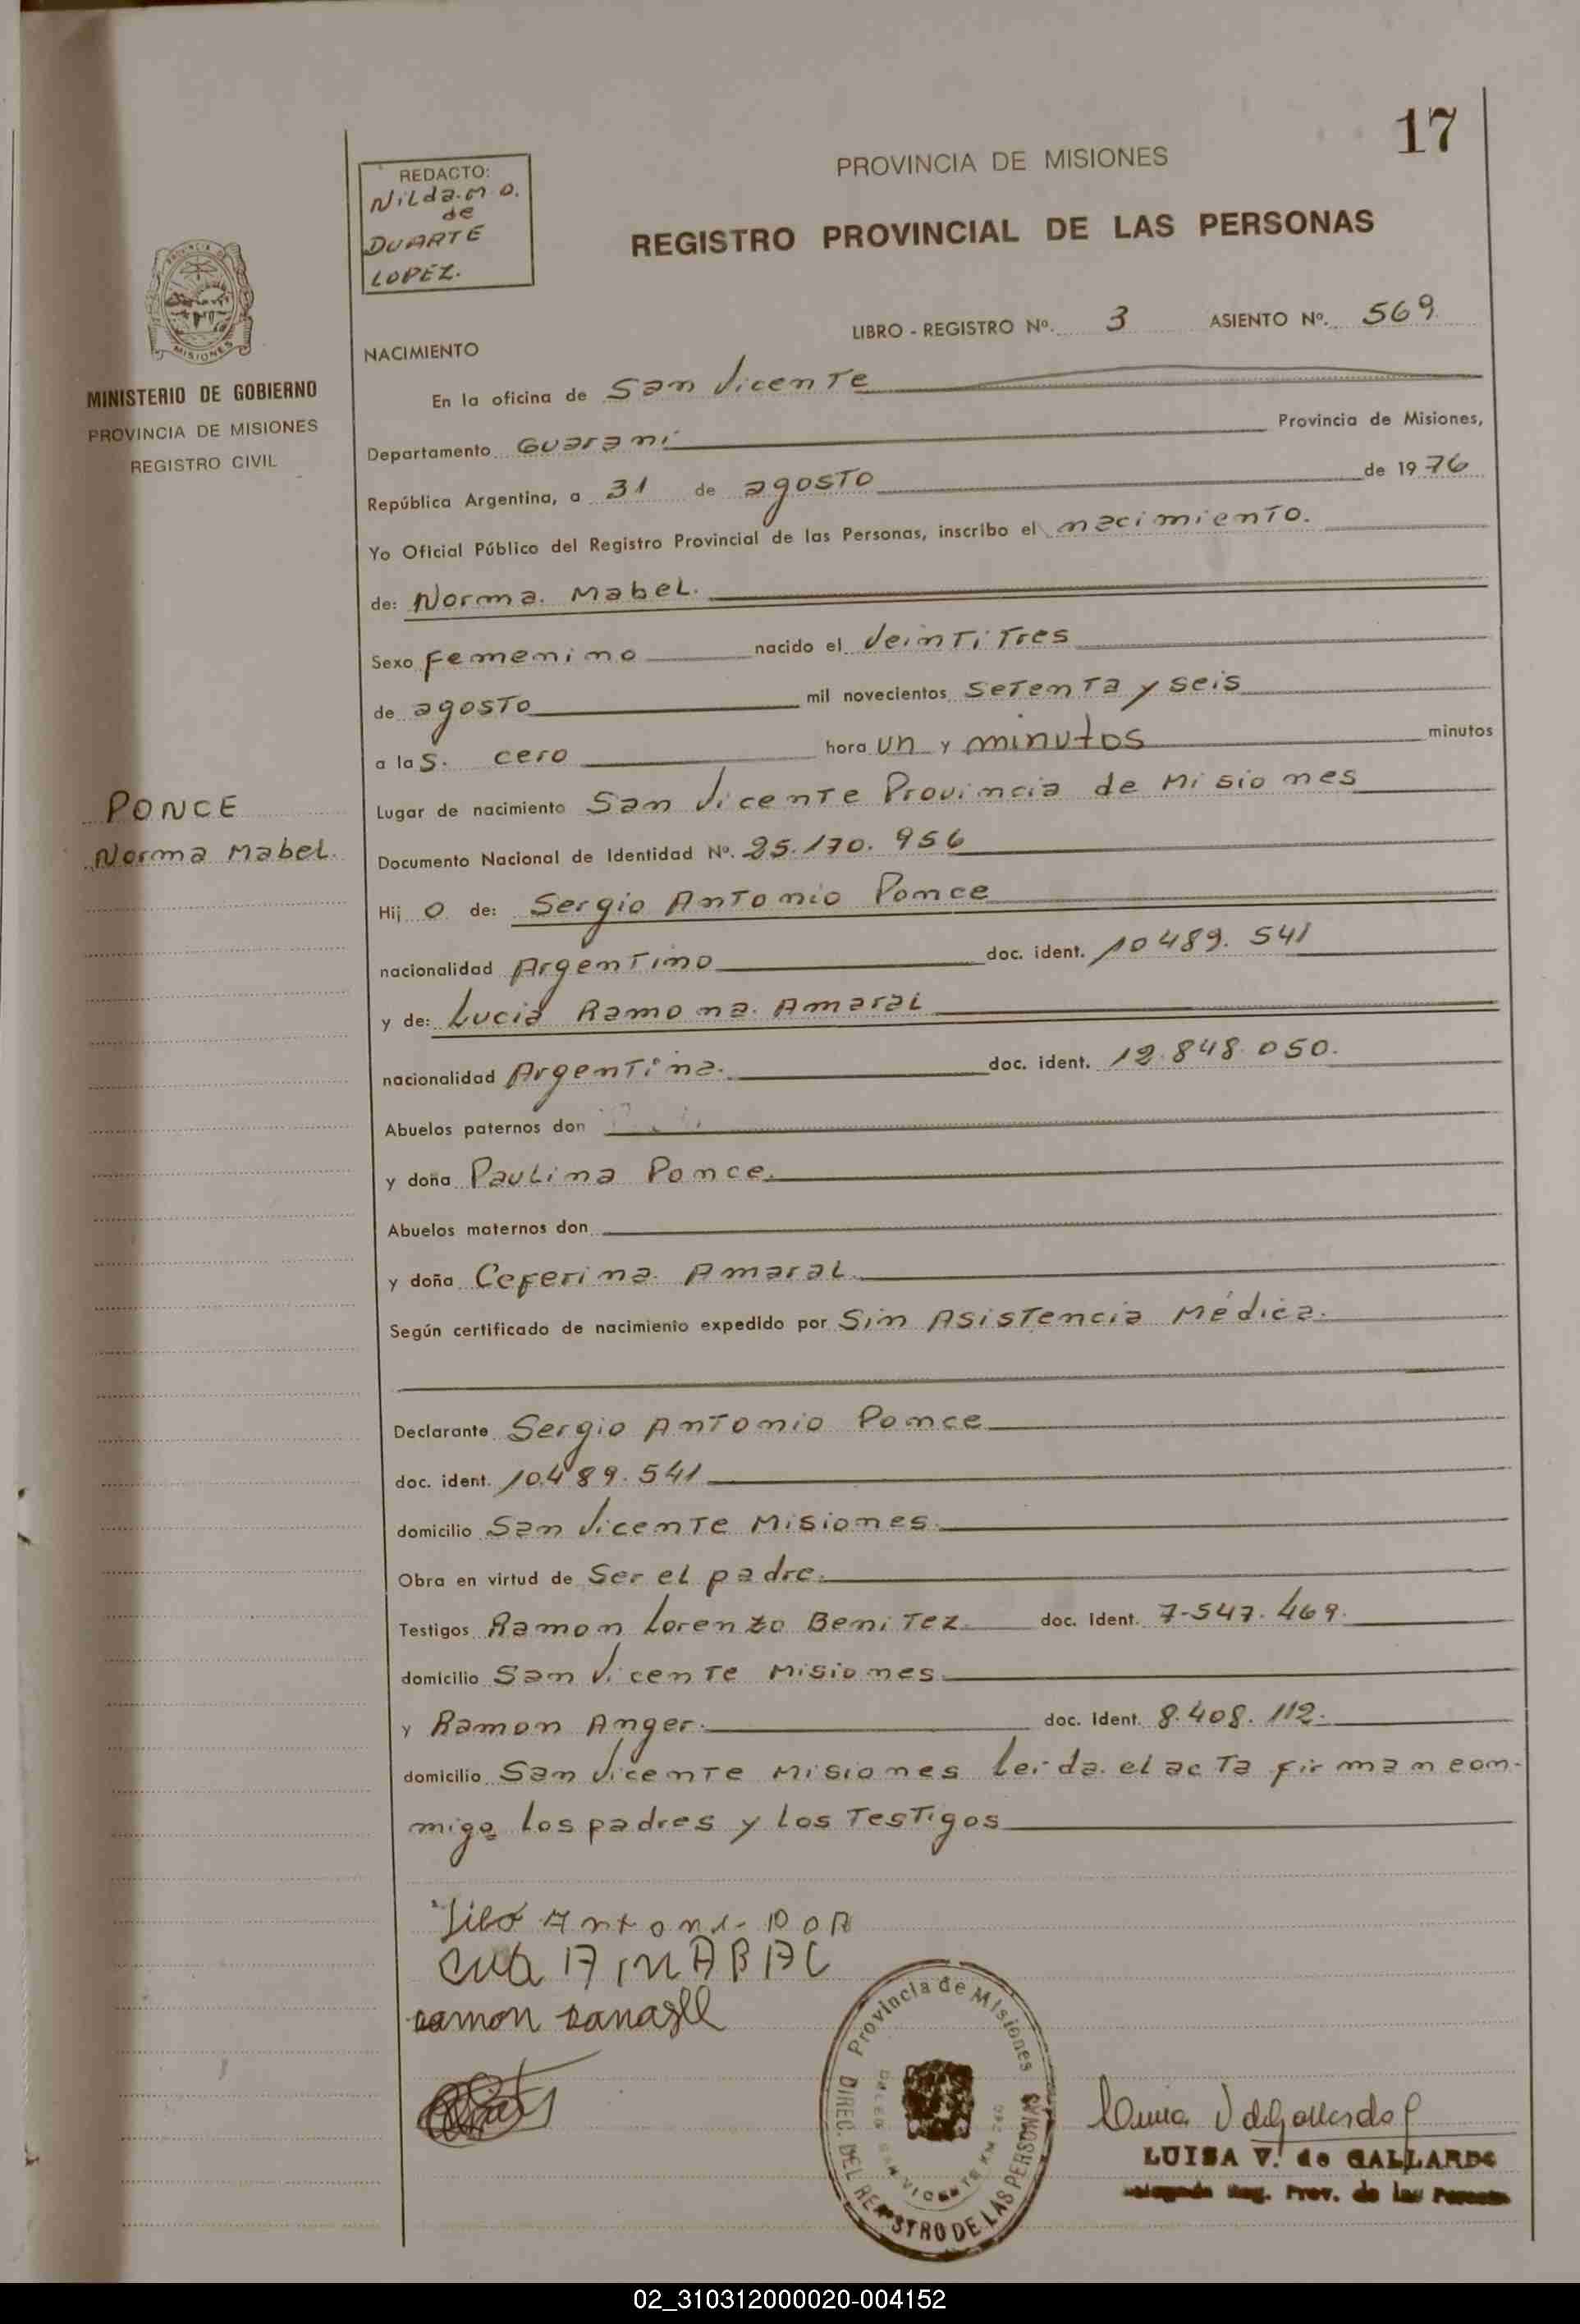 17
REDACTO:
Nilda. M O.
de
DUARTE
LOPEZ.
PROVINCIA DE MISIONES
REGISTRO PROVINCIAL DE LAS PERSONAS
LIBRO - REGISTRO Nº. 3 ASIENTO Nº. 569
MISIONES
MINISTERIO DE GOBIERNO
PROVINCIA DE MISIONES
REGISTRO CIVIL
NACIMIENTO
En la oficina de San Vicente
Departamento Guaraní Provincia de Misiones,
República Argentina, a 31 de agosto de 1976
Yo Oficial Público del Registro Provincial de las Personas, inscribo el nacimiento.
de: Norma. Mabel.
Sexo femenino nacido el Veintitres
de agosto mil novecientos setenta y seis
a las. cero hora un y minutos minutos
PONCE
Norma Mabel.
Lugar de nacimiento San Vicente Provincia de Misiones
Documento Nacional de Identidad Nº. 25.170.956
Hij o de: Sergio Antonio Ponce
nacionalidad Argentino doc. ident. 10489.541
y de: Lucia Ramona. Amaral
nacionalidad Argentina. doc. ident. 12.848.050.
Abuelos paternos don
y doña Paulina Ponce.
Abuelos maternos don
y doña Ceferina. Amaral.
Según certificado de nacimiento expedido por Sin Asistencia Médica.
Declarante Sergio Antonio Ponce
doc. ident. 10.489.541
domicilio San Vicente Misiones.
Obra en virtud de Ser el padre.
Testigos Ramon Lorenzo Benitez doc. Ident. 7-547.469.
domicilio San Vicente Misiones
y Ramon Anger. doc. Ident. 8.408.112.
domicilio San Vicente Misiones leida. el acta firman con-
migo los padres y los testigos
Provincia de Misiones
DIREC. DEL REGISTRO DE LAS PERSONAS
LUISA V. de GALLARDO
Reg. Prov. de las
02_310312000020-004152